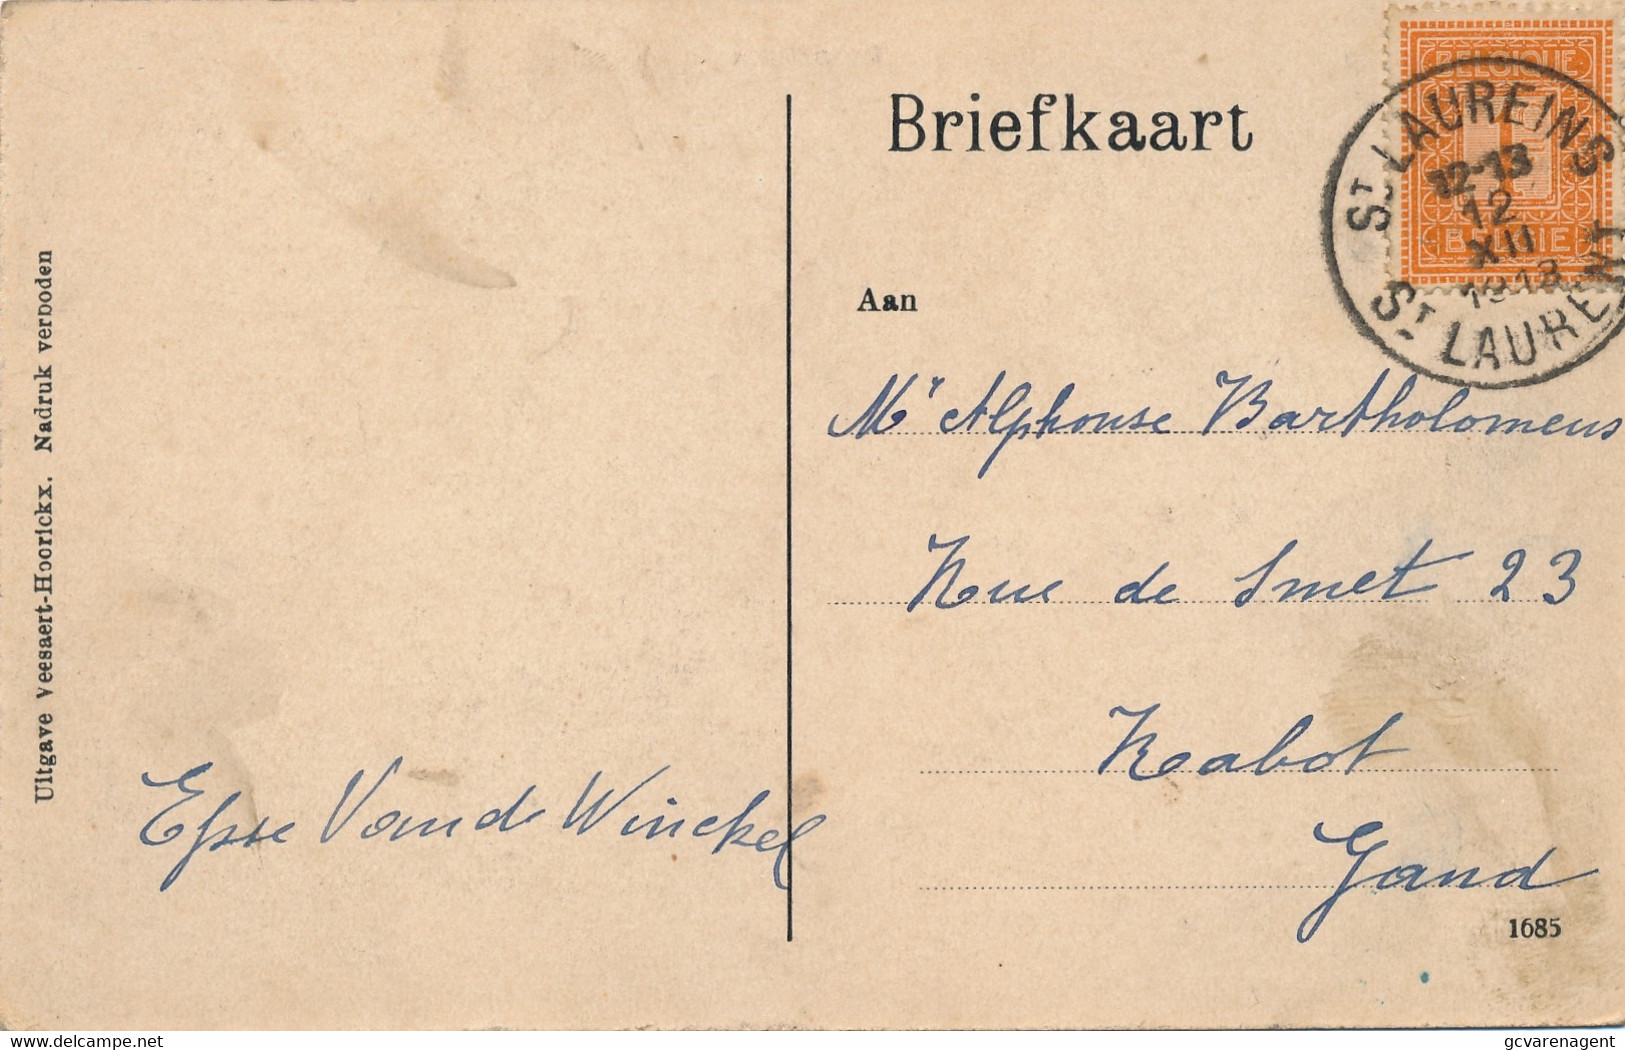 Briefkaart
BELGIQUE
1
BELGIE
ST LAUREINS
12-13
12
XII
ST LAURENT
Aan
Mr Alphonse Bartholomeus
Rue de Smet 23
Rabot
Gand
1685
Vande Winckel
Uitgave Veesaert-Hoorickx. Nadruk verboden
delcampe.net
gcvarenagent